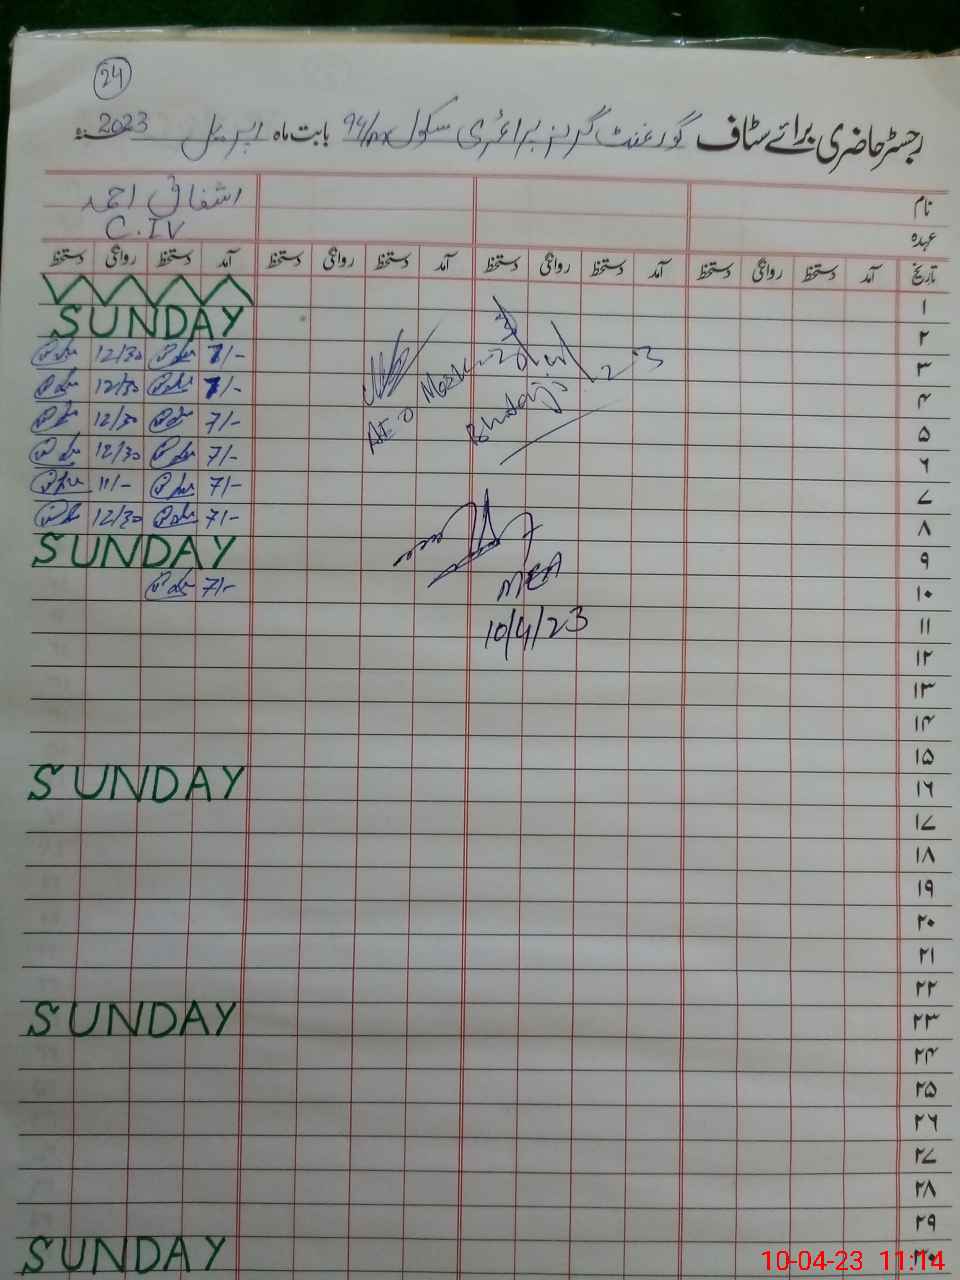 24
رجسٹر حاضری برائے سٹاف گورنمنٹ گرلز پرائمری سکول 94/ بابت ماہ اپریل 2023
نام اشفاق احمد
عہدہ C.IV
تاریخ آمد دستخط روانگی دستخط آمد دستخط روانگی دستخط آمد دستخط روانگی دستخط آمد دستخط روانگی دستخط
۱
۲ SUNDAY
۳ 7/- 12/30
۴ 7/- 12/30
۵ 7/- 12/30
۶ 7/- 12/30
۷ 7/- 11/-
۸ 7/- 12/30
۹ SUNDAY
۱۰ 7/-
AEO
MEA
10/4/23
۱۱
۱۲
۱۳
۱۴
۱۵
۱۶ SUNDAY
۱۷
۱۸
۱۹
۲۰
۲۱
۲۲
۲۳ SUNDAY
۲۴
۲۵
۲۶
۲۷
۲۸
۲۹
۳۰ SUNDAY
10-04-23 11:14